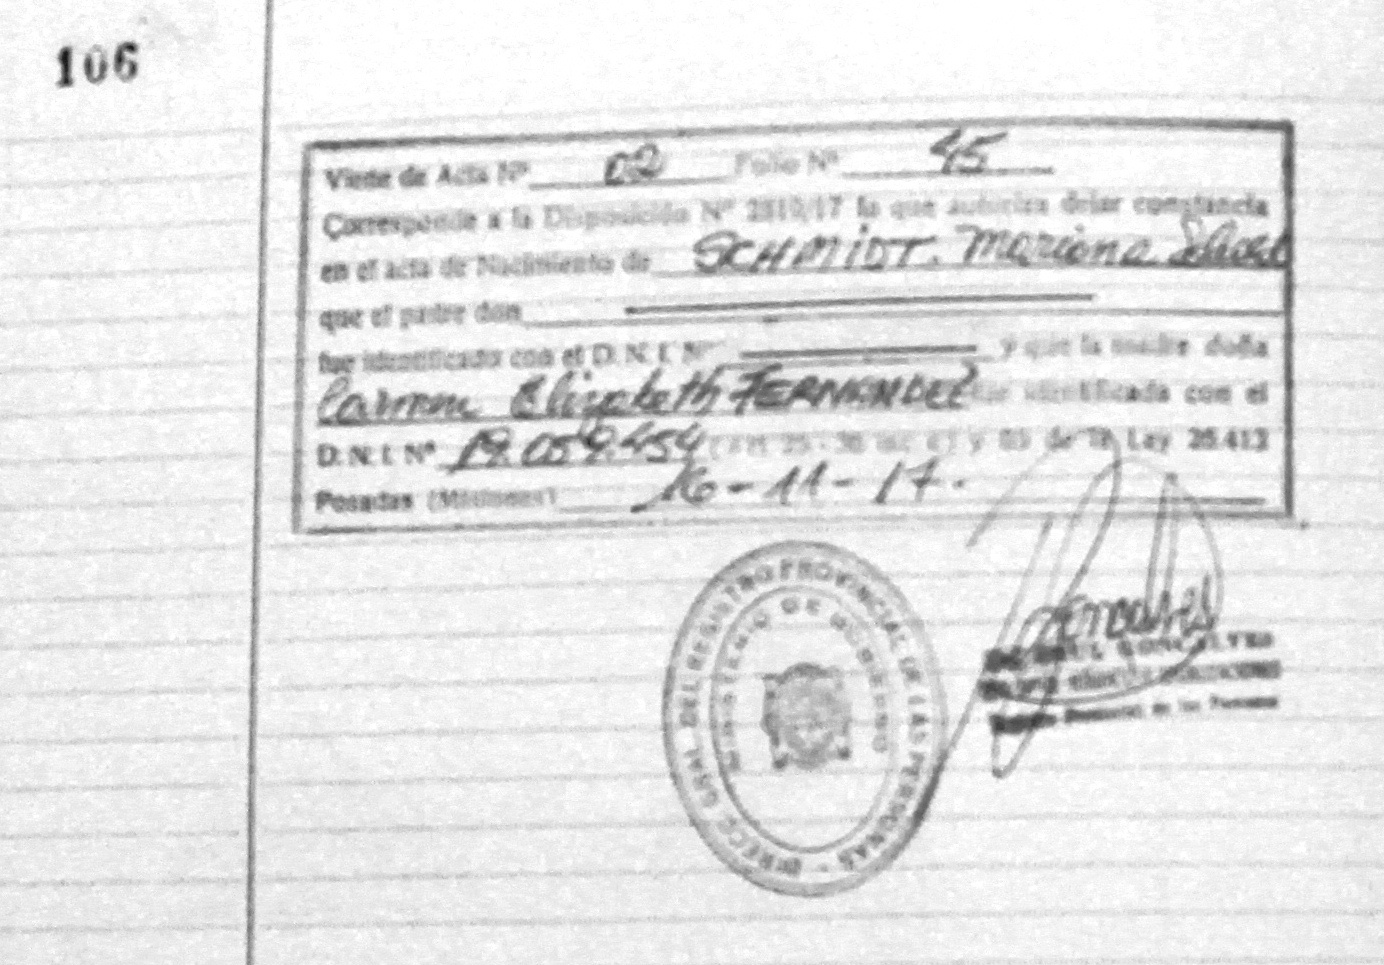 106
Viene de Acta Nº 02 Folio Nº 45
Corresponde a la Disposición Nº 2810/17 la que autoriza dejar constancia
en el acta de Nacimiento de SCHMIDT. Mariana
que el padre don
fue identificado con el D. N. I. Nº y que la madre doña
Carmen Elizabeth FERNANDEZ fue identificada con el
D. N. I. Nº 19.059.454 y 85 de la Ley 26.413
Posadas (Misiones) 16-11-17.
DIRECC. GRAL. DEL REGISTRO PROVINCIAL DE LAS PERSONAS
MINISTERIO DE GOBIERNO
de las Personas